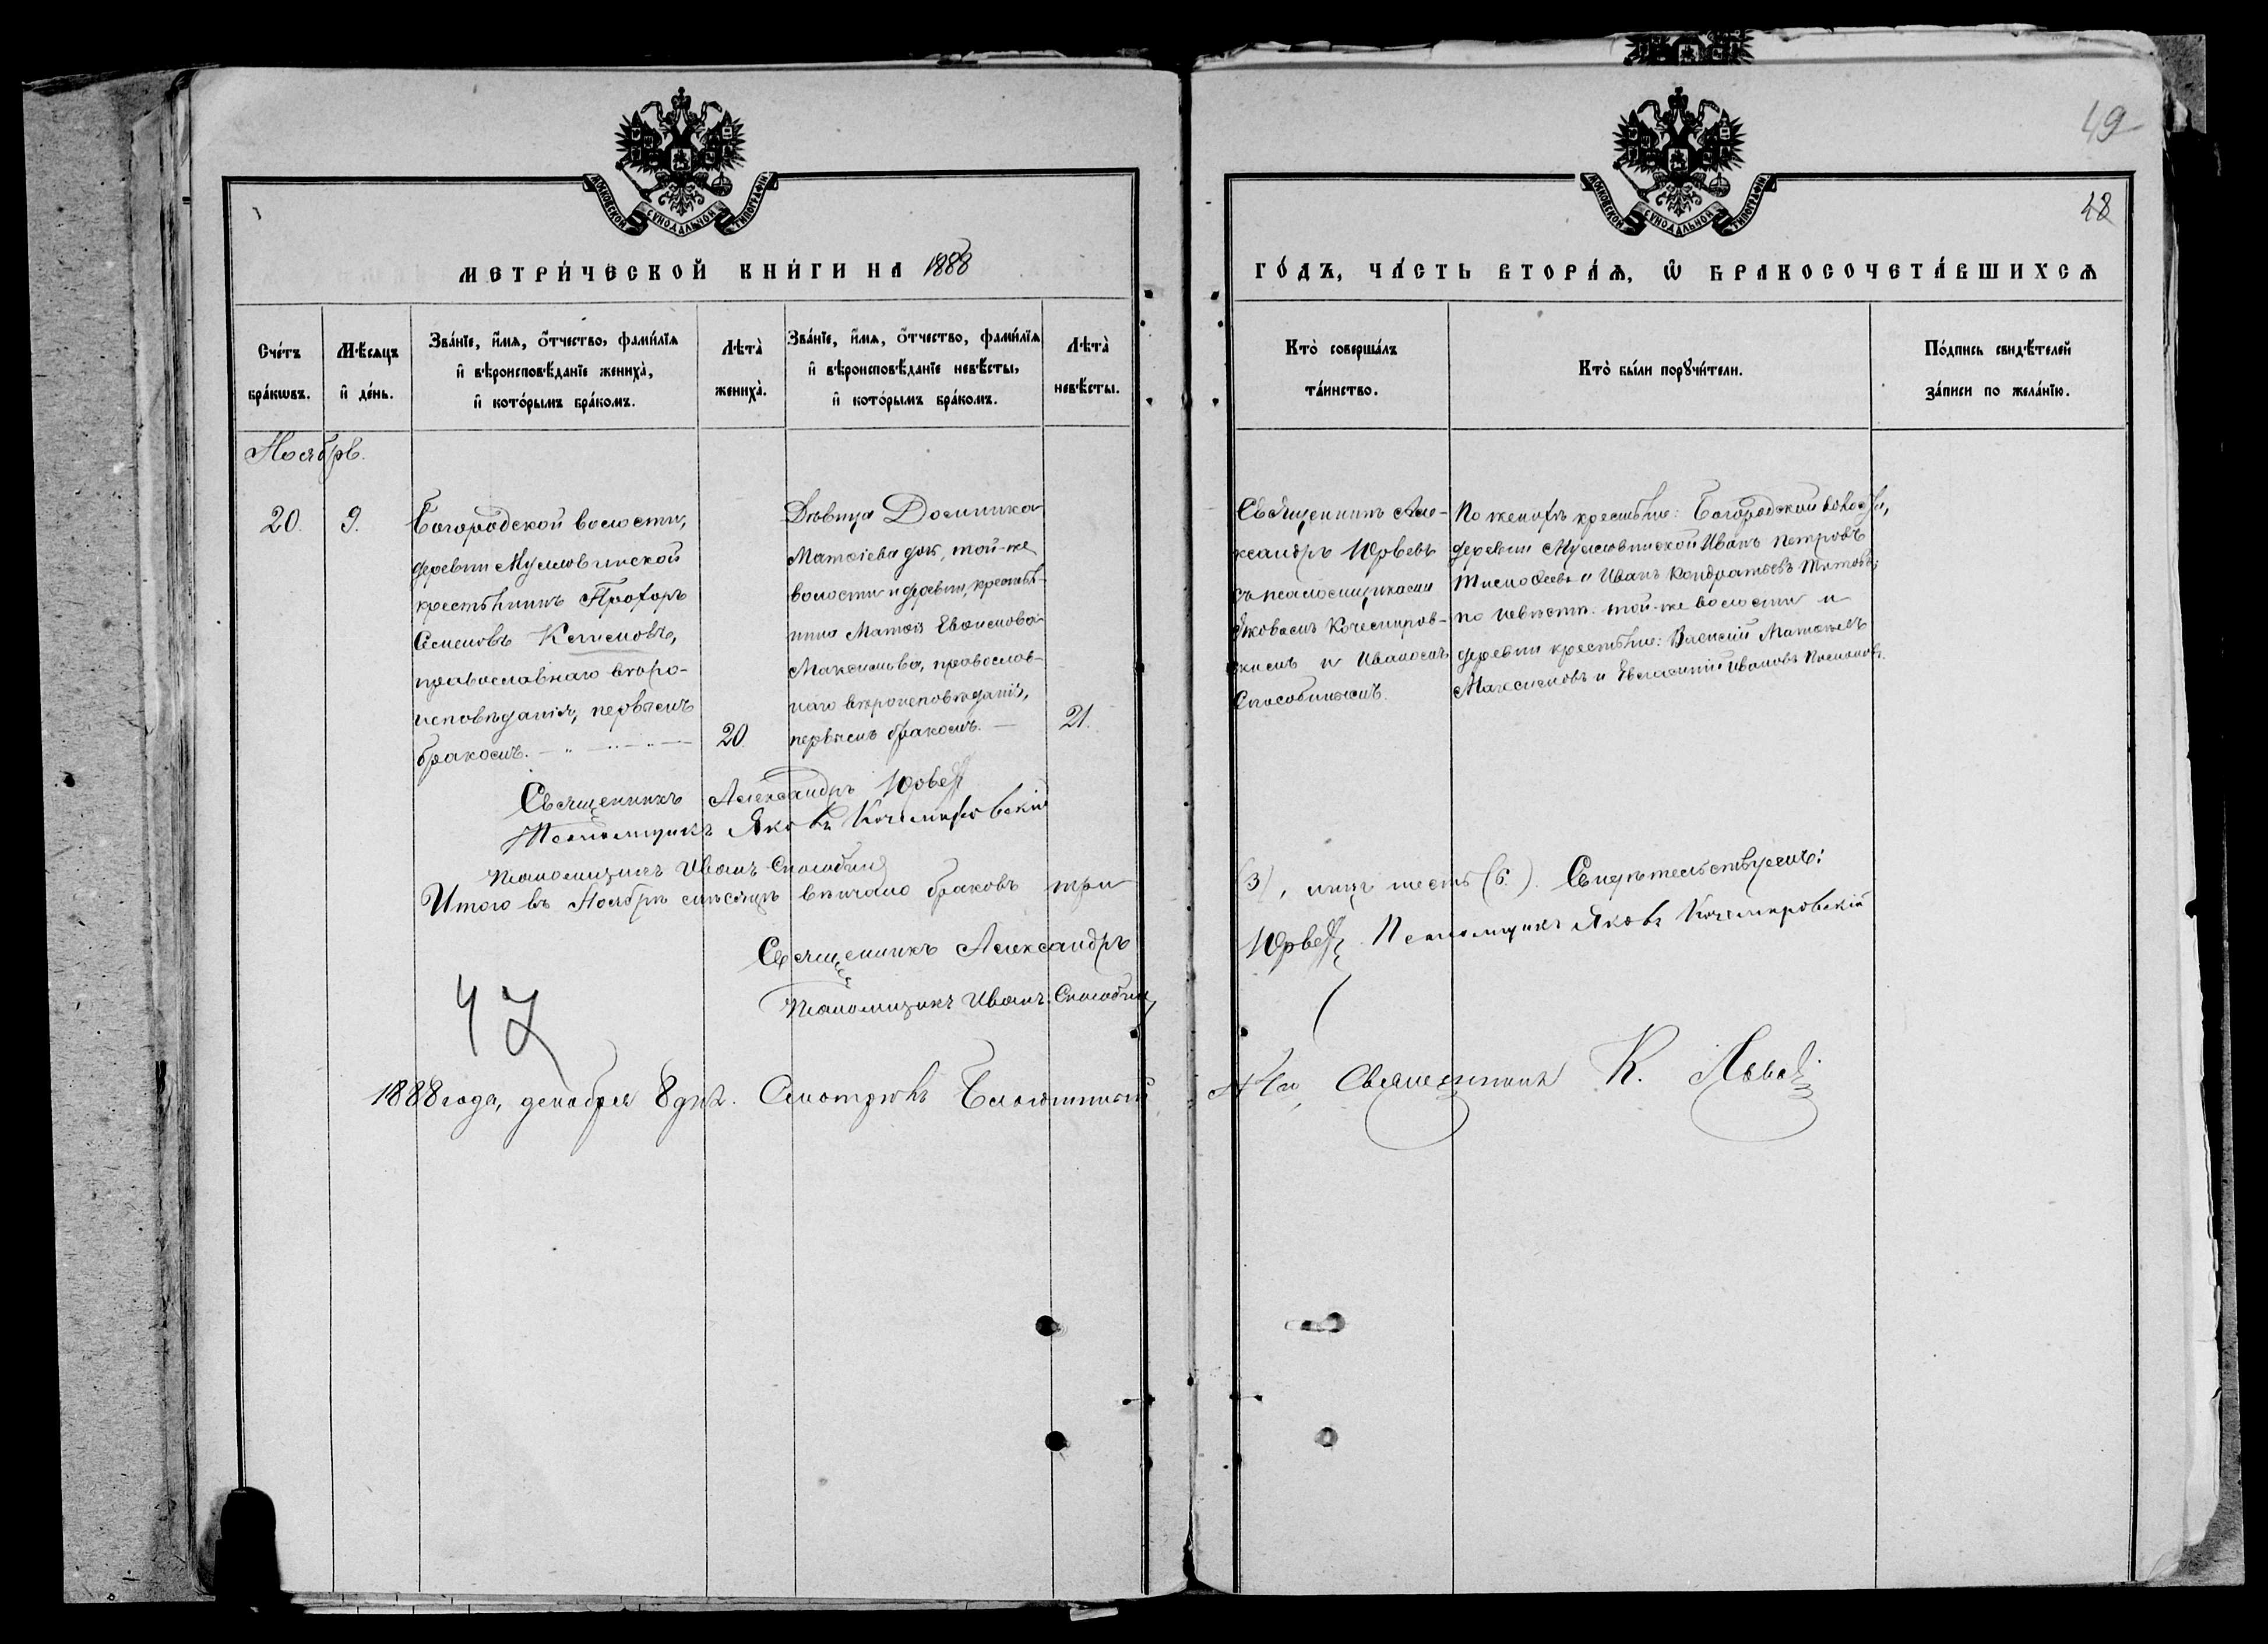 49
48
МОСКОВСКОЙ СѴНОДАЛЬНОЙ ТИПОГРАФІИ
МОСКОВСКОЙ СѴНОДАЛЬНОЙ ТИПОГРАФІИ
МЕТРИ́ЧЕСКОЙ КНИ́ГИ НА 1888
ГО́ДЪ, ЧА́СТЬ ВТОРА́Ѧ, Ѡ҆ БРАКОСОЧЕТА́ВШИХСѦ
Сче́тъ
бра́кѡвъ.
Мѣ́сяцъ
и҆ де́нь.
Зва́нїе, и҆́мя, ѻ҆́тчество, фами́лїя
и҆ вѣроисповѣ́данїе жениха̀,
и҆ кото́рымъ бра́комъ.
Лѣта̀
жениха̀.
Зва́нїе, и҆́мя, ѻ҆́тчество, фами́лїя
и҆ вѣроисповѣ́данїе невѣ́сты,
и҆ кото́рымъ бра́комъ.
Лѣта̀
невѣ́сты.
Кто̀ соверша́лъ
та́инство.
Кто̀ бы́ли порꙋчи́тели.
По́дпись свидѣ́телей
за́писи по жела́нїю.
Ноябрь.
20.
9.
Богородской волости,
деревни
крестьянинъ Прохоръ
Семеновъ
православнаго вѣро-
исповѣданія, первымъ
бракомъ.
20.
Дѣвица Домника
Матѳіева доч, той-же
волости и деревни, крестья-
нина Матѳія
Максимова, православ-
наго вѣроисповѣданія,
первымъ бракомъ.
21.
Священникъ Але-
ксандръ Юрьевъ
съ псаломщиками
Яковомъ Кочемиров-
скимъ и Иваномъ
Способинымъ.
По женихѣ крестьяне: Богородской волости,
деревни Иванъ Петровъ
Тимоѳеевъ и Иванъ Кондратьевъ Титовъ;
по невѣстѣ той-же волости и
деревни крестьяне: Матѳѣевъ
Максимовъ и Ивановъ
Священникъ Александръ Юрьевъ
Псаломщикъ Яковъ Кочемировскій
Псаломщикъ Иванъ Способинъ
Итого въ Ноябрѣ мѣсяцѣ вѣнчано браковъ три
(3), лицъ шесть (6). Свидѣтельствуемъ:
Священникъ Александръ
Юрьевъ Псаломщикъ Яковъ Кочемировскій
Псаломщикъ Иванъ Способинъ
47
1888 года, декабря 8 дня. Смотрѣлъ Благочинный
Священникъ К. Львовъ